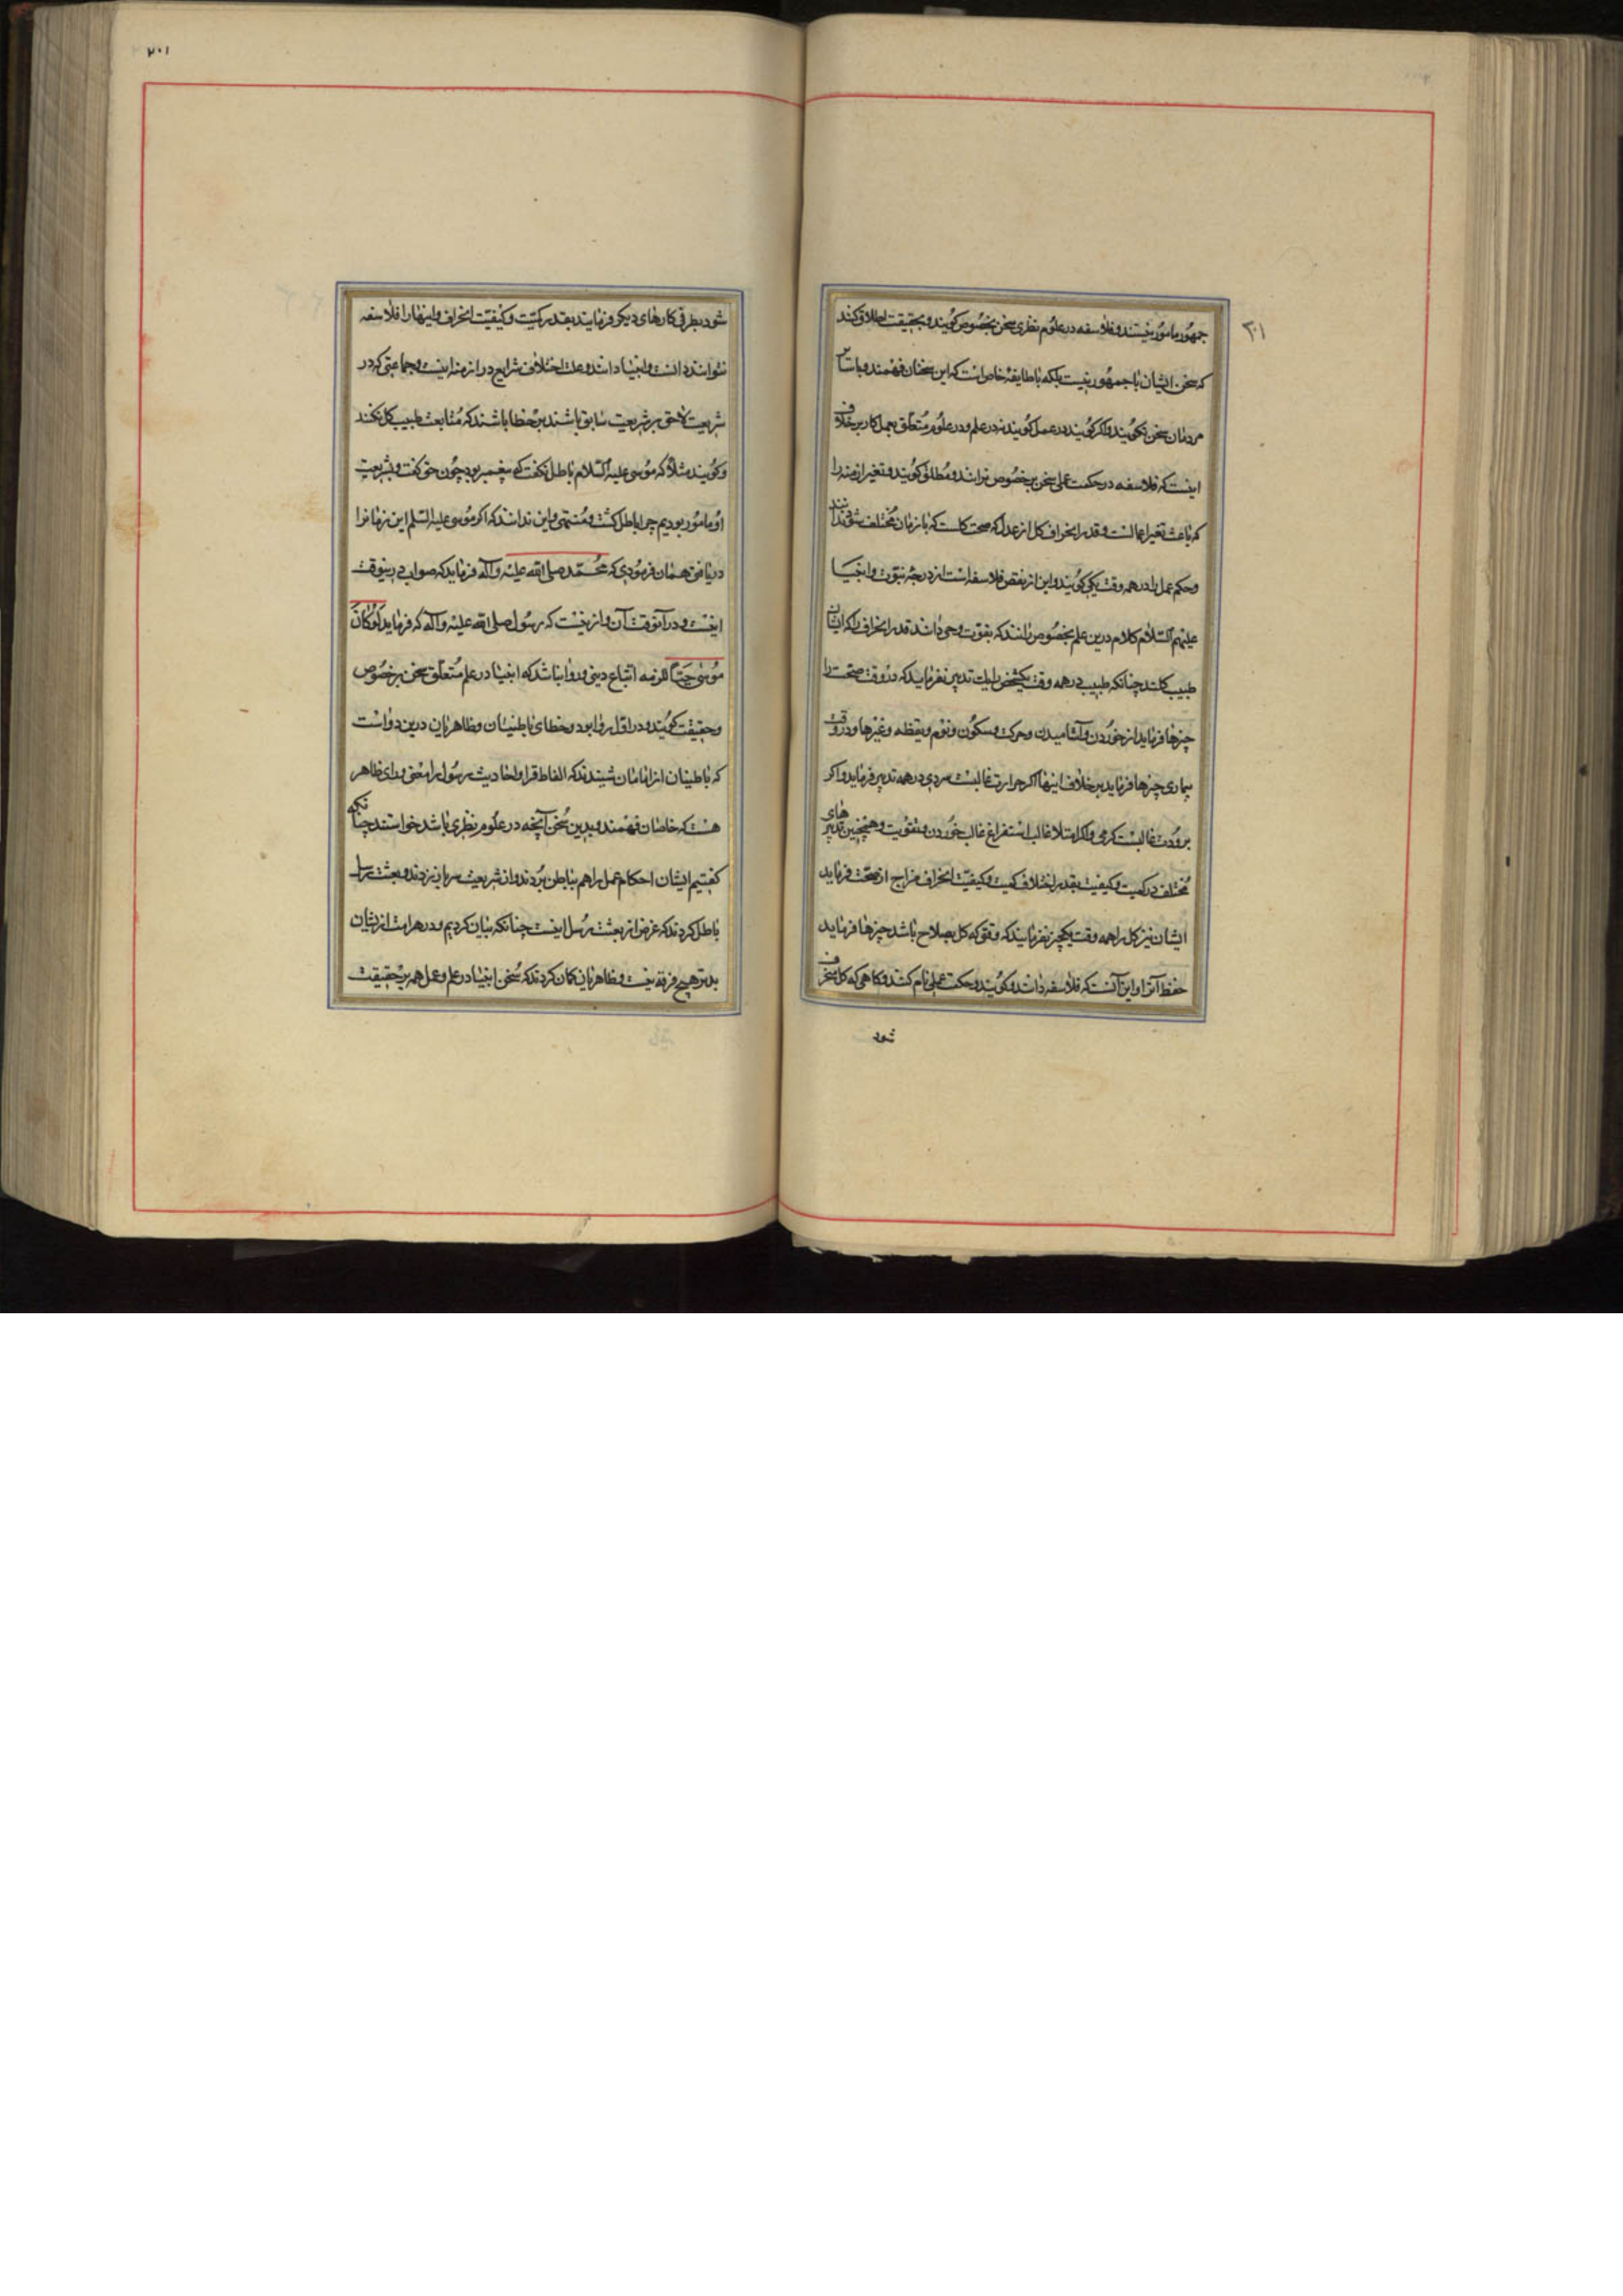 ۲۰۱
جمهور مامور نیستند و فلاسفه در علوم نظری سخن بخصوص کویند و بحقیقت اطلاق کنند
که سخن ایشان با جمهور نیست بلکه با طایفهٔ خاص است که این سخنان فهمند و با سایر
مردمان سخن نکویند و اکر کویند در عمل کویند نه در علم و در علوم متعلق بعمل کار بر خلاف
اینست که فلاسفه در حکمت عملی سخن بر خصوص نرانند و مطلق کویند و تغیر ازمنه را
که باعث تغیر اعمالست و قدر انحراف کل از عدل که صحت کلست که با زمان مختلف شود ندانند
وحکم عمل را در همه وقت یکی کویند و این از نقص فلاسفه است از درجهٔ نبوت و انبیا
علیهم السلام کلام درین علم بخصوص رانند که بقوت وحی دانند قدر انحراف را که ایشان
طبیب کلند چنانکه طبیب در همه وقت یکشخص را یک تدبیر نفرماید که در وقت صحت را
چیزها فرماید از خوردن و آشامیدن و حرکت و سکون و نوم و یقظه و غیرها و در وقت
بیماری چیزها فرماید بر خلاف اینها اکر حرارت غالبست سردی در همه تدبیر فرماید و اکر
برودت غالبست کرمی و اکر امتلا غالب استفراغ غالب خوردن و تقویت و همچنین تدبیر های
مختلف در کمیت و کیفیت بقدر اختلاف کمیت و کیفیت انحراف مزاج از صحت فرماید
ایشان نیز کل را همه وقت یکچیز نفرمایند که وقتی که کل بصلاح باشد چیزها فرماید
حفظ آنرا و این آنست که فلاسفه دانند و کویند و حکمت عملی نام کنند و کاهی که کل منحرف
شود
۲۰۱
شود بطرفی کارهای دیکر فرمایند بقدر کمیت و کیفیت انحراف و اینها را فلاسفه
نتوانند دانست و انبیا دانند و علت اختلاف شرایع در ازمنه اینست و جماعتی که در
شریعت لاحق بر شریعت سابق باشند بر خطا باشند که متابعت طبیب کل نکنند
و کویند مثلا که موسی علیه السلام باطل نکفت که پیغمبر بود چون حق کفت و بشریعت
او مامور بودیم چرا باطل کشت و منتهی و این ندانند که اکر موسی علیه السلم این زمانرا
دریافتی همان فرمودی که محمد صلی الله علیه و آله فرماید که صواب درینوقت
اینست و در آنوقت آن و از نیست که رسول صلی الله علیه و آله که فرماید لوکان
موسی حیا لزمه اتباع دینی و روا نباشد که انبیا در علم متعلق سخن بر خصوص
و حقیقت کویند و در اقل روا بود و خطای باطنیان و ظاهریان درین دو است
که باطنیان از امامان شنیدند که الفاظ قران و احادیث رسول را معنی ورای ظاهر
هست که خاصان فهمند و بدین سخن آنچه در علوم نظری باشد خواستند چنانکه
کفتیم ایشان احکام عمل را هم بباطن بردند و از شریعت سر باز زدند و بعثت رسل
باطل کردند که غرض از بعثت رسل اینست چنانکه بیان کردیم و در هر امت ازیشان
بدتر هیچ فرقه نیست و ظاهریان کمان کردند که سخن انبیا در علم و عمل همه بر حقیقت